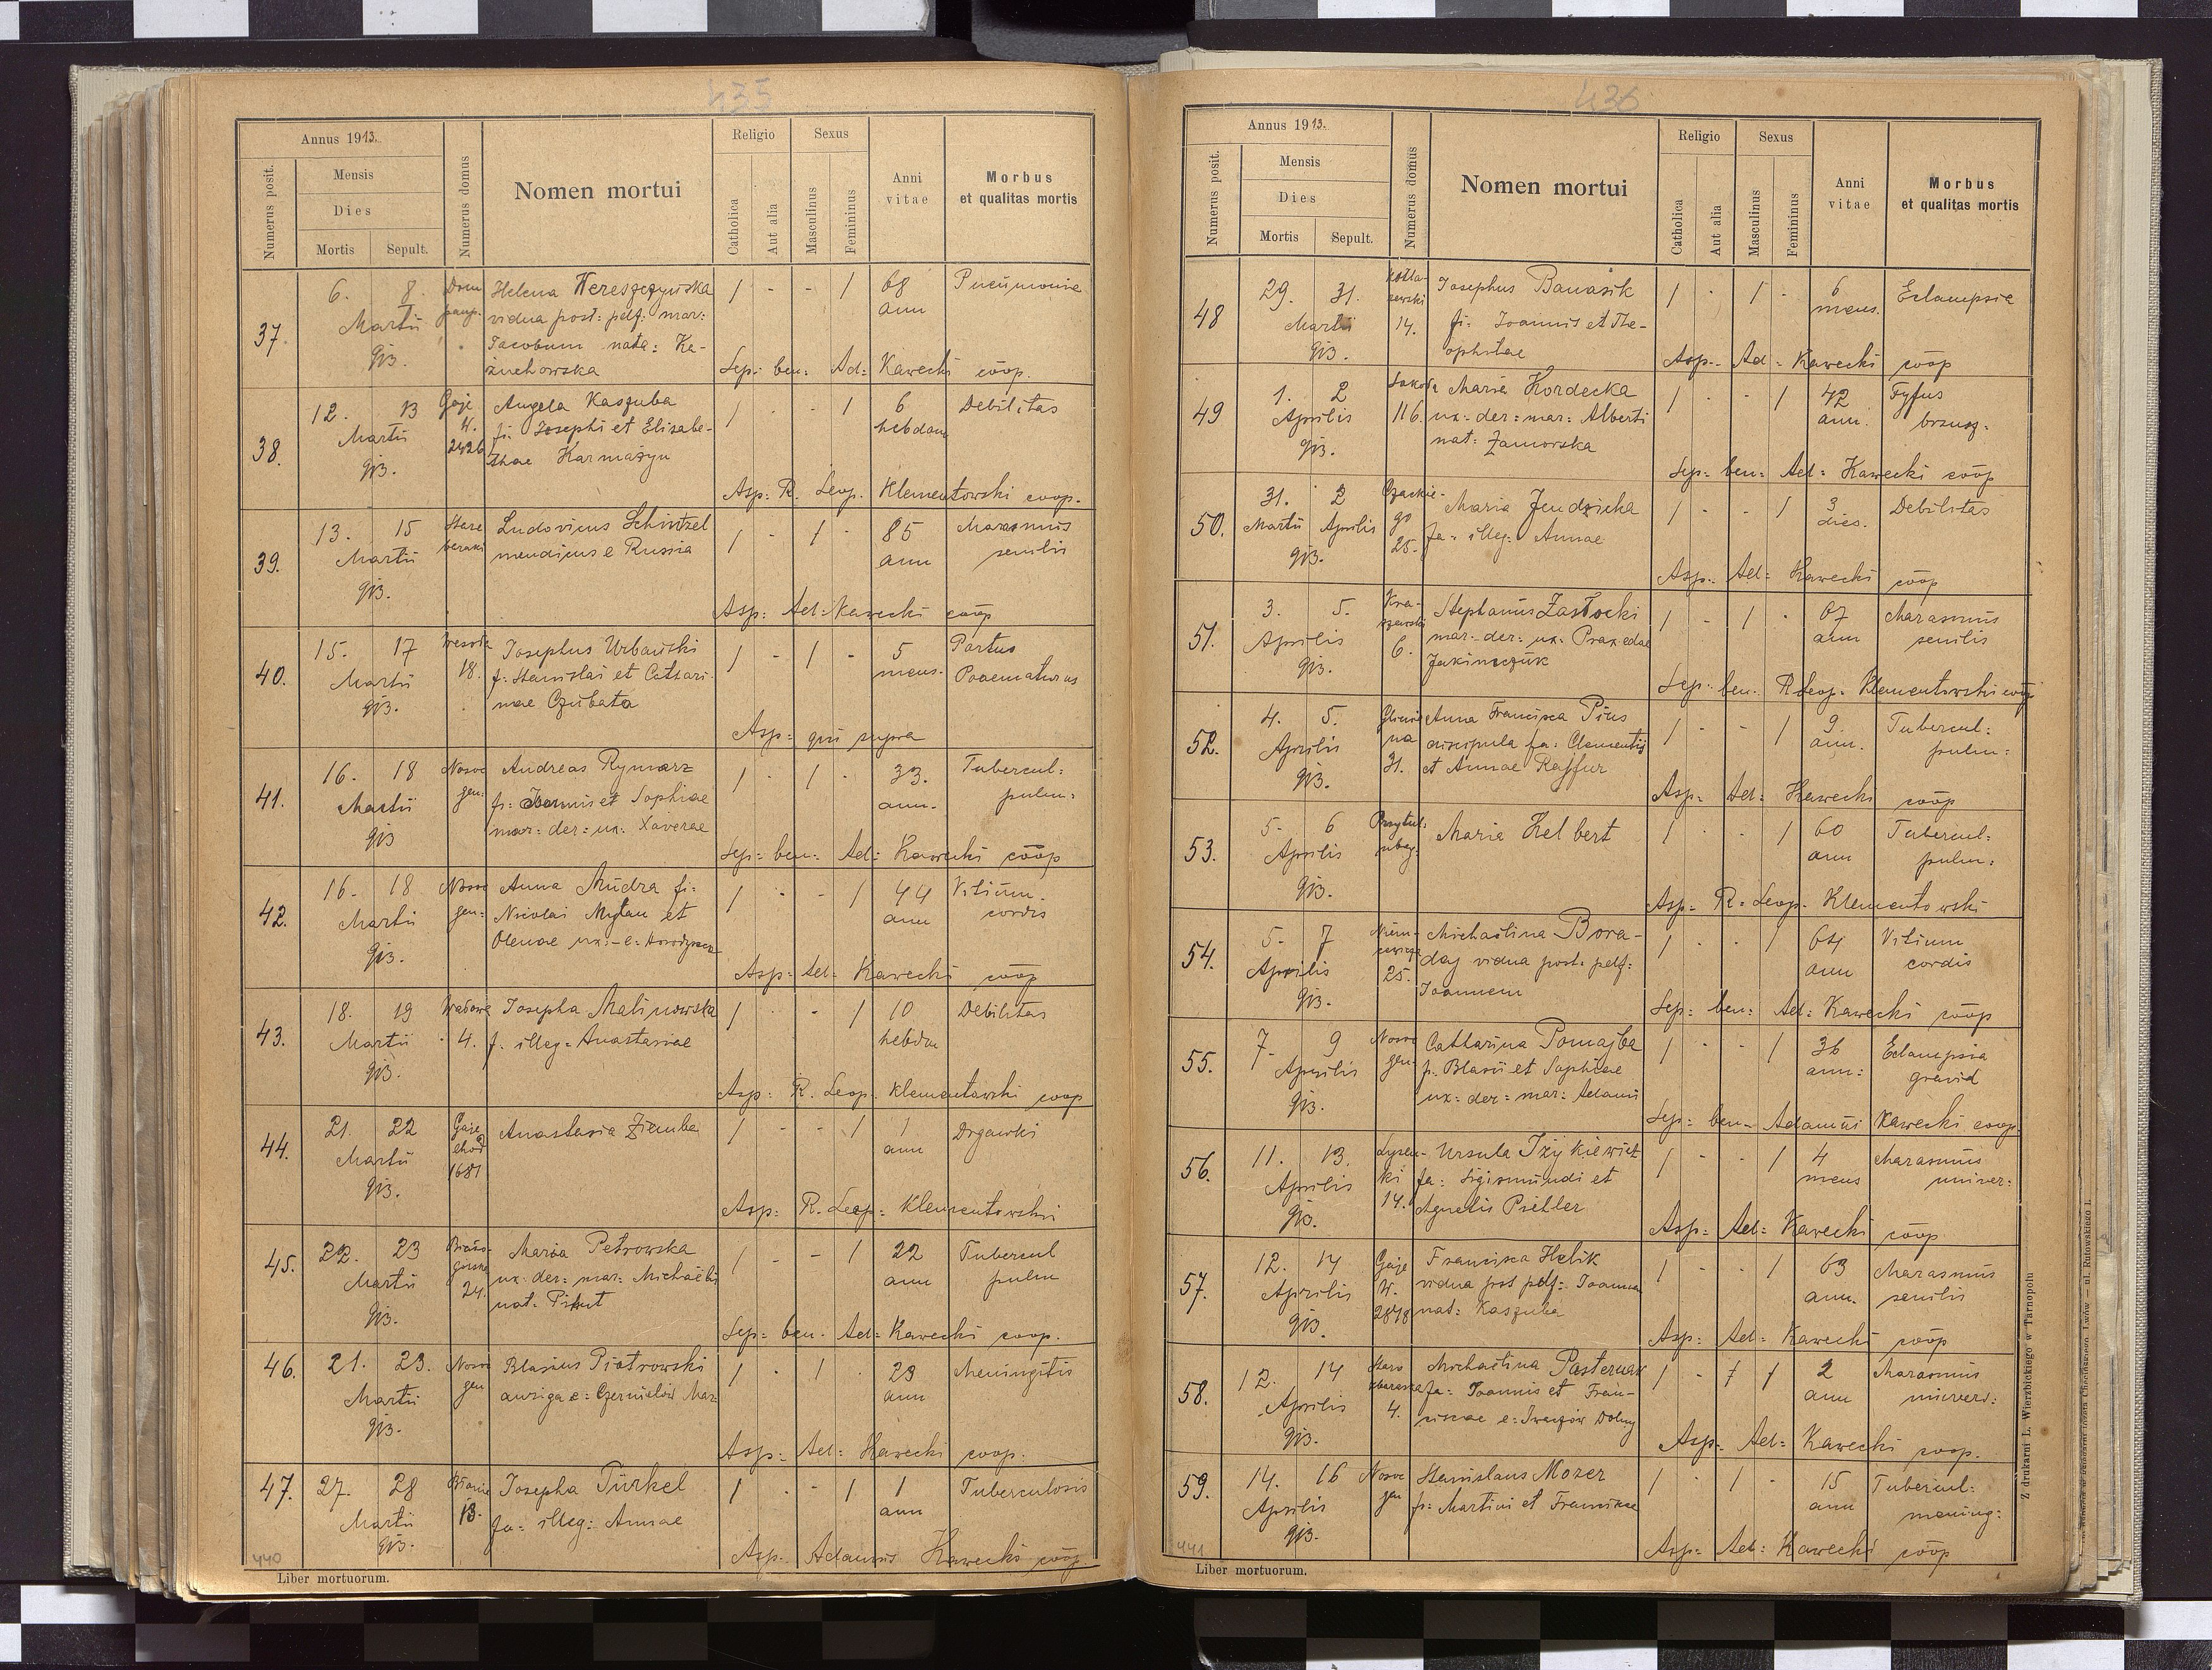 435
Annus 1913.
Numerus posit.
Mensis
Dies
Mortis
Sepult.
Numerus domus
Nomen mortui
Religio
Catholica
Aut alia
Sexus
Masculinus
Femininus
Anni vitae
Morbus
et qualitas mortis
37. 6. 8. Dom Helena Hereszczyńska 1 - - 1 68 Pneumonie
Martii vidua post: pdf: mar: ann
913. Jacobum nata: Ka-
żuchowska Sep: ben: Ad: Kawecki coop.
38. 12. 13 Gaje Angela Kaszuba 1 - - 1 6 Debilitas
Martii W. fi: Josephi et Elisabe- hebdom
913. 2426 thae Karmazyn
Asp: R. Leop. Klementowski coop.
39. 13. 15 Stare Ludovicus Schintzel 1 - 1 - 85 Marasmus
Martii mendicus e Russia ann senilis
913.
Asp: Ad: Kawecki coop
40. 15. 17 Wesoła Josephus Urbański 1 - 1 - 5 Partus
Martii 18. f: Stanislai et Cathari- mens. Praematurus
913. nae Czubata
Asp: qui supra
41. 16. 18 Nosoc Andreas Rymarz 1 - 1 - 33. Tubercul:
Martii gen: fi: Joannis et Sophiae ann. pulm:
913 mar: der: ux: Xaverae
Sep: ben: Ad: Kawecki coop
42. 16. 18 Nosoc Anna Mudra fi: 1 - - 1 44 Vitium
Martii gen: Nicolai Mytan et ann cordis
913. Olenae ux: e:
Asp: Ad: Kawecki coop
43. 18. 19 Josepha Malinowska 1 - - 1 10 Debilitas
Martii 4. f. illeg: Anastasiae hebdom
913.
Asp: R. Leop. Klementowski coop
44. 21. 22 Gaje Anastasia Ziemba 1 - - 1 1 Drgawki
Martii chod ann
913. 1681
Asp: R. Leop: Klementowski
45. 22. 23 Maria Petrowska 1 - 1 22 Tubercul
Martii ux: der: mar: Michaëlis ann pulm
913. 24. nat:
Sep: ben. Ad: Kawecki coop.
46. 21. 23. Nosoc Blasius Piotrowski 1 - 1 - 23 Meningitis
Martii gen auriga e: Czernielów Maz: ann
913.
Asp: Ad: Kawecki coop.
47. 27. 28 Josepha Türkel 1 - - 1 1 Tuberculosis
Martii 13. fa: illeg: Annae ann
913.
Asp. Adamus Kawecki coop
440
Liber mortuorum.
436
Annus 1913.
Numerus posit.
Mensis
Dies
Mortis
Sepult.
Numerus domus
Nomen mortui
Religio
Catholica
Aut alia
Sexus
Masculinus
Femininus
Anni vitae
Morbus
et qualitas mortis
48 29. 31. Josephus Banasik 1 - 1 - 6 Eclampsia
Martii 14. fi: Joannis et The- mens.
913. ophilae
Asp. Ad: Kawecki coop
49 1. 2 Maria Kordecka 1 - - 1 42 Tyfus
Aprilis 116. ux: der: mar: Alberti ann. brzusz:
913. nat: Zamorska
Sep: ben: Ad: Kawecki coop
50. 31. 2 Czackie- Maria Jendzicka 1 - - 1 3 Debilitas
Martii Aprilis go fa: illeg: Annae dies.
913. 25.
Asp: Ad: Kawecki coop
51. 3. 5. Kra- Stephanus Zasłocki 1 - 1 - 67 Marasmus
Aprilis szewski mar: der: ux: Praxedae ann senilis
913. 6. Jakimczuk
Sep: ben. R Leop. Klementowski coop
52. 4. 5. Glinia Anna Francisca Pius 1 - - 1 9. Tubercul:
Aprilis na discipula fa: Clementis ann. pulm:
913. 31. et Annae
Asp. Ad: Kawecki coop
53. 5. 6 Przytul. Maria Helbert 1 - - 1 60 Tubercul:
Aprilis ubog. ann pulm:
913.
Asp: R: Leop. Klementowski
54. 5. 7 Niem- Michaëlina Bora- 1 - - 1 64 Vitium
Aprilis cewicz daj vidua post: pdf: ann cordis
913. 25. Joannem
Sep: ben: Ad: Kawecki coop
55. 7. 9 Nosoc Catharina Pomajba 1 - - 1 36 Eclampsia
Aprilis gen f. Blasii et Sophiae ann: gravid
913. ux: der: mar: Adami
Sep: ben- Adamus Kawecki coop.
56. 11. 13. Lysen- Ursula 1 - - 1 4 Marasmus
Aprilis ki fa: Sigismundi et mens univer:
913. 14. Agnetis Pieller
Asp: Ad: Kawecki coop
57. 12. 14 Gaje Francisca Helik 1 - - 1 63 Marasmus
Aprilis W. vidua post pdf: Joanna ann. senilis
913. 2848 nat: Kaszuba
Asp: Ad: Kawecki coop
58. 12. 14 Staro Michaëlina Pasternak 1 - 1 1 2 Marasmus
Aprilis zbaraska fa: Joannis et Fran- ann univers:
913. 4. ciscae e: Iwaczów Dolny
Asp: Ad: Kawecki coop.
59. 14. 16 Nosoc Stanislaus Mozer 1 - 1 - 15 Tubercul:
Aprilis gen f: Martini et Franciscae ann mening:
913.
Asp: Ad: Kawecki coop
441
Liber mortuorum.
Z drukarni L. Wierzbickiego w Tarnopolu